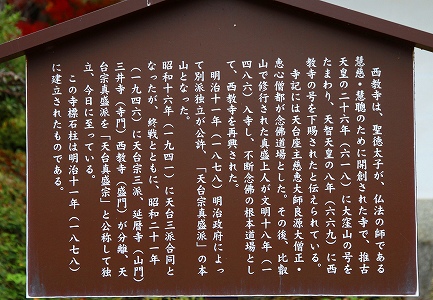 西教寺は、聖徳太子が、仏法の師である
慧慈・慧聰のために開創された寺で、推古
天皇の二十六年（六一八）に大窪山の号を
たまわり、天智天皇の八年（六六九）に西
教寺の号を下賜されたと伝えられている。
寺記には天台座主慈恵大師良源大僧正・
恵心僧都が念佛道場とした。その後、比叡
山で修行された真盛上人が文明十八年（一
四八六）入寺し、不断念佛の根本道場とし
て、西教寺を再興された。
明治十一年（一八七八）明治政府によっ
て別派独立が公許、「天台宗真盛派」の本
山となった。
昭和十六年（一九四一）に天台三派合同と
なったが、終戦とともに、昭和二十一年
（一九四六）に天台宗三派、延暦寺（山門）
三井寺（寺門）西教寺（盛門）が分離、天
台宗真盛派を「天台真盛宗」と公称して独
立、今日に至っている。
この寺標石柱は明治十一年（一八七八）
に建立されたものである。